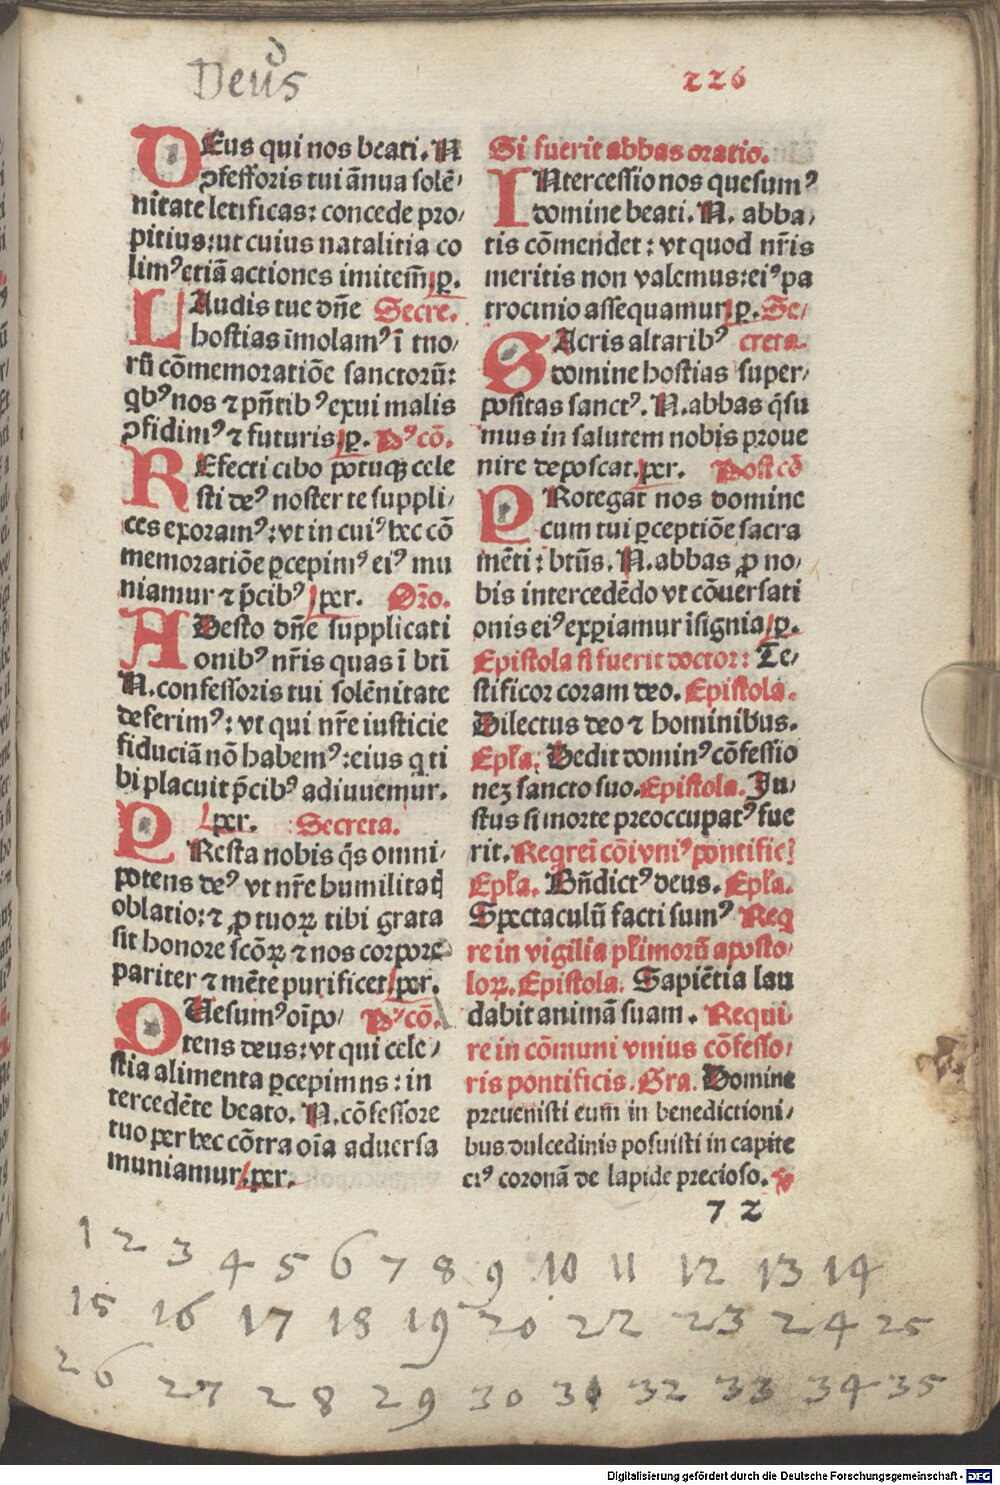 Deus
d
226
DEus qui nos beati. N
ꝯfessoris tui ānua solē⸗
nitate letificas: concede pro⸗
pitius: ut cuius natalitia co
limꝰ etiā actiones imitem̄. ꝑ.
LAudis tue dn̄e Secre.
hostias īmolamꝰ ī tuo⸗
rū cōmemoratiōe sanctorū:
qbꝰ nos ⁊ pn̄tibꝰ exui malis
ꝯfidimꝰ ⁊ futuris. ꝑ. Pꝰ cō.
REfecti cibo potuqꝫ cele
sti deꝰ noster te suppli⸗
ces exoramꝰ: vt in cuiꝰ hec cō
memoratiōe ꝑcepimꝰ eiꝰ mu
niamur ⁊ p̄cibꝰ. per. Oro.
ADesto dn̄e supplicati
onibꝰ nr̄is quas ī bt̄i
N. confessoris tui solēnitate
deferimꝰ: vt qui nr̄e iusticie
fiduciā nō habemꝰ: eius q ti
bi placuit p̄cibꝰ adiuuemur.
per. Secreta.
PResta nobis q̄s omni⸗
potens deꝰ vt nr̄e humilitatꝭ
oblatio: ⁊ ꝓ tuoꝝ tibi grata
sit honore scōꝝ ⁊ nos corpore
pariter ⁊ mēte purificet. per.
QUesumꝰ oīpo⸗ Pꝰ cō.
tens deus: vt qui cele⸗
stia alimenta ꝑcepimns: in
tercedēte beato. N. cōfessore
tuo per hec cōtra oīa aduersa
muniamur. per.
Si fuerit abbas oratio.
INtercessio nos quesumꝰ
domine beati. N. abba⸗
tis cōmendet: vt quod nr̄is
meritis non valemus: eiꝰ pa
trocinio assequamur. ꝑ. Se⸗
SAcris altaribꝰ creta.
domine hostias super⸗
positas sanctꝰ. N. abbas q̄su
mus in salutem nobis proue
nire deposcat. per. Post cō
PRotegat nos domine
cum tui ꝑceptiōe sacra
mēti: btūs. N. abbas ꝓ no⸗
bis intercedēdo vt cōuersati
onis eiꝰ exꝑiamur īsignia. ꝑ.
Epistola si fuerit doctor: Te⸗
stificor coram deo. Epistola.
Dilectus deo ⁊ hominibus.
Epl̄a. Dedit dominꝰ cōfessio
nez sancto suo. Epistola. Ju⸗
stus si morte preoccupatꝰ fue
rit. Reqrei cōi vniꝰ pontific̄
Epl̄a. Bn̄dictꝰ deus. Epl̄a.
Spectaculū facti sumꝰ Req
re in vigilia pl̄imorū aposto⸗
loꝝ. Epistola. Sapiētia lau
dabit animā suam. Requi⸗
re in cōmuni vnius cōfesso⸗
ris pontificis. Gra. Domine
preuenisti eum in benedictioni⸗
bus dulcedinis posuisti in capite
eiꝰ coronā de lapide precioso.
72
1 2 3 4 5 6 7 8 9 10 11 12 13 14
15 16 17 18 19 20 22 23 24 25
26 27 28 29 30 31 32 33 34 35
Digitalisierung gefördert durch die Deutsche Forschungsgemeinschaft - DFG